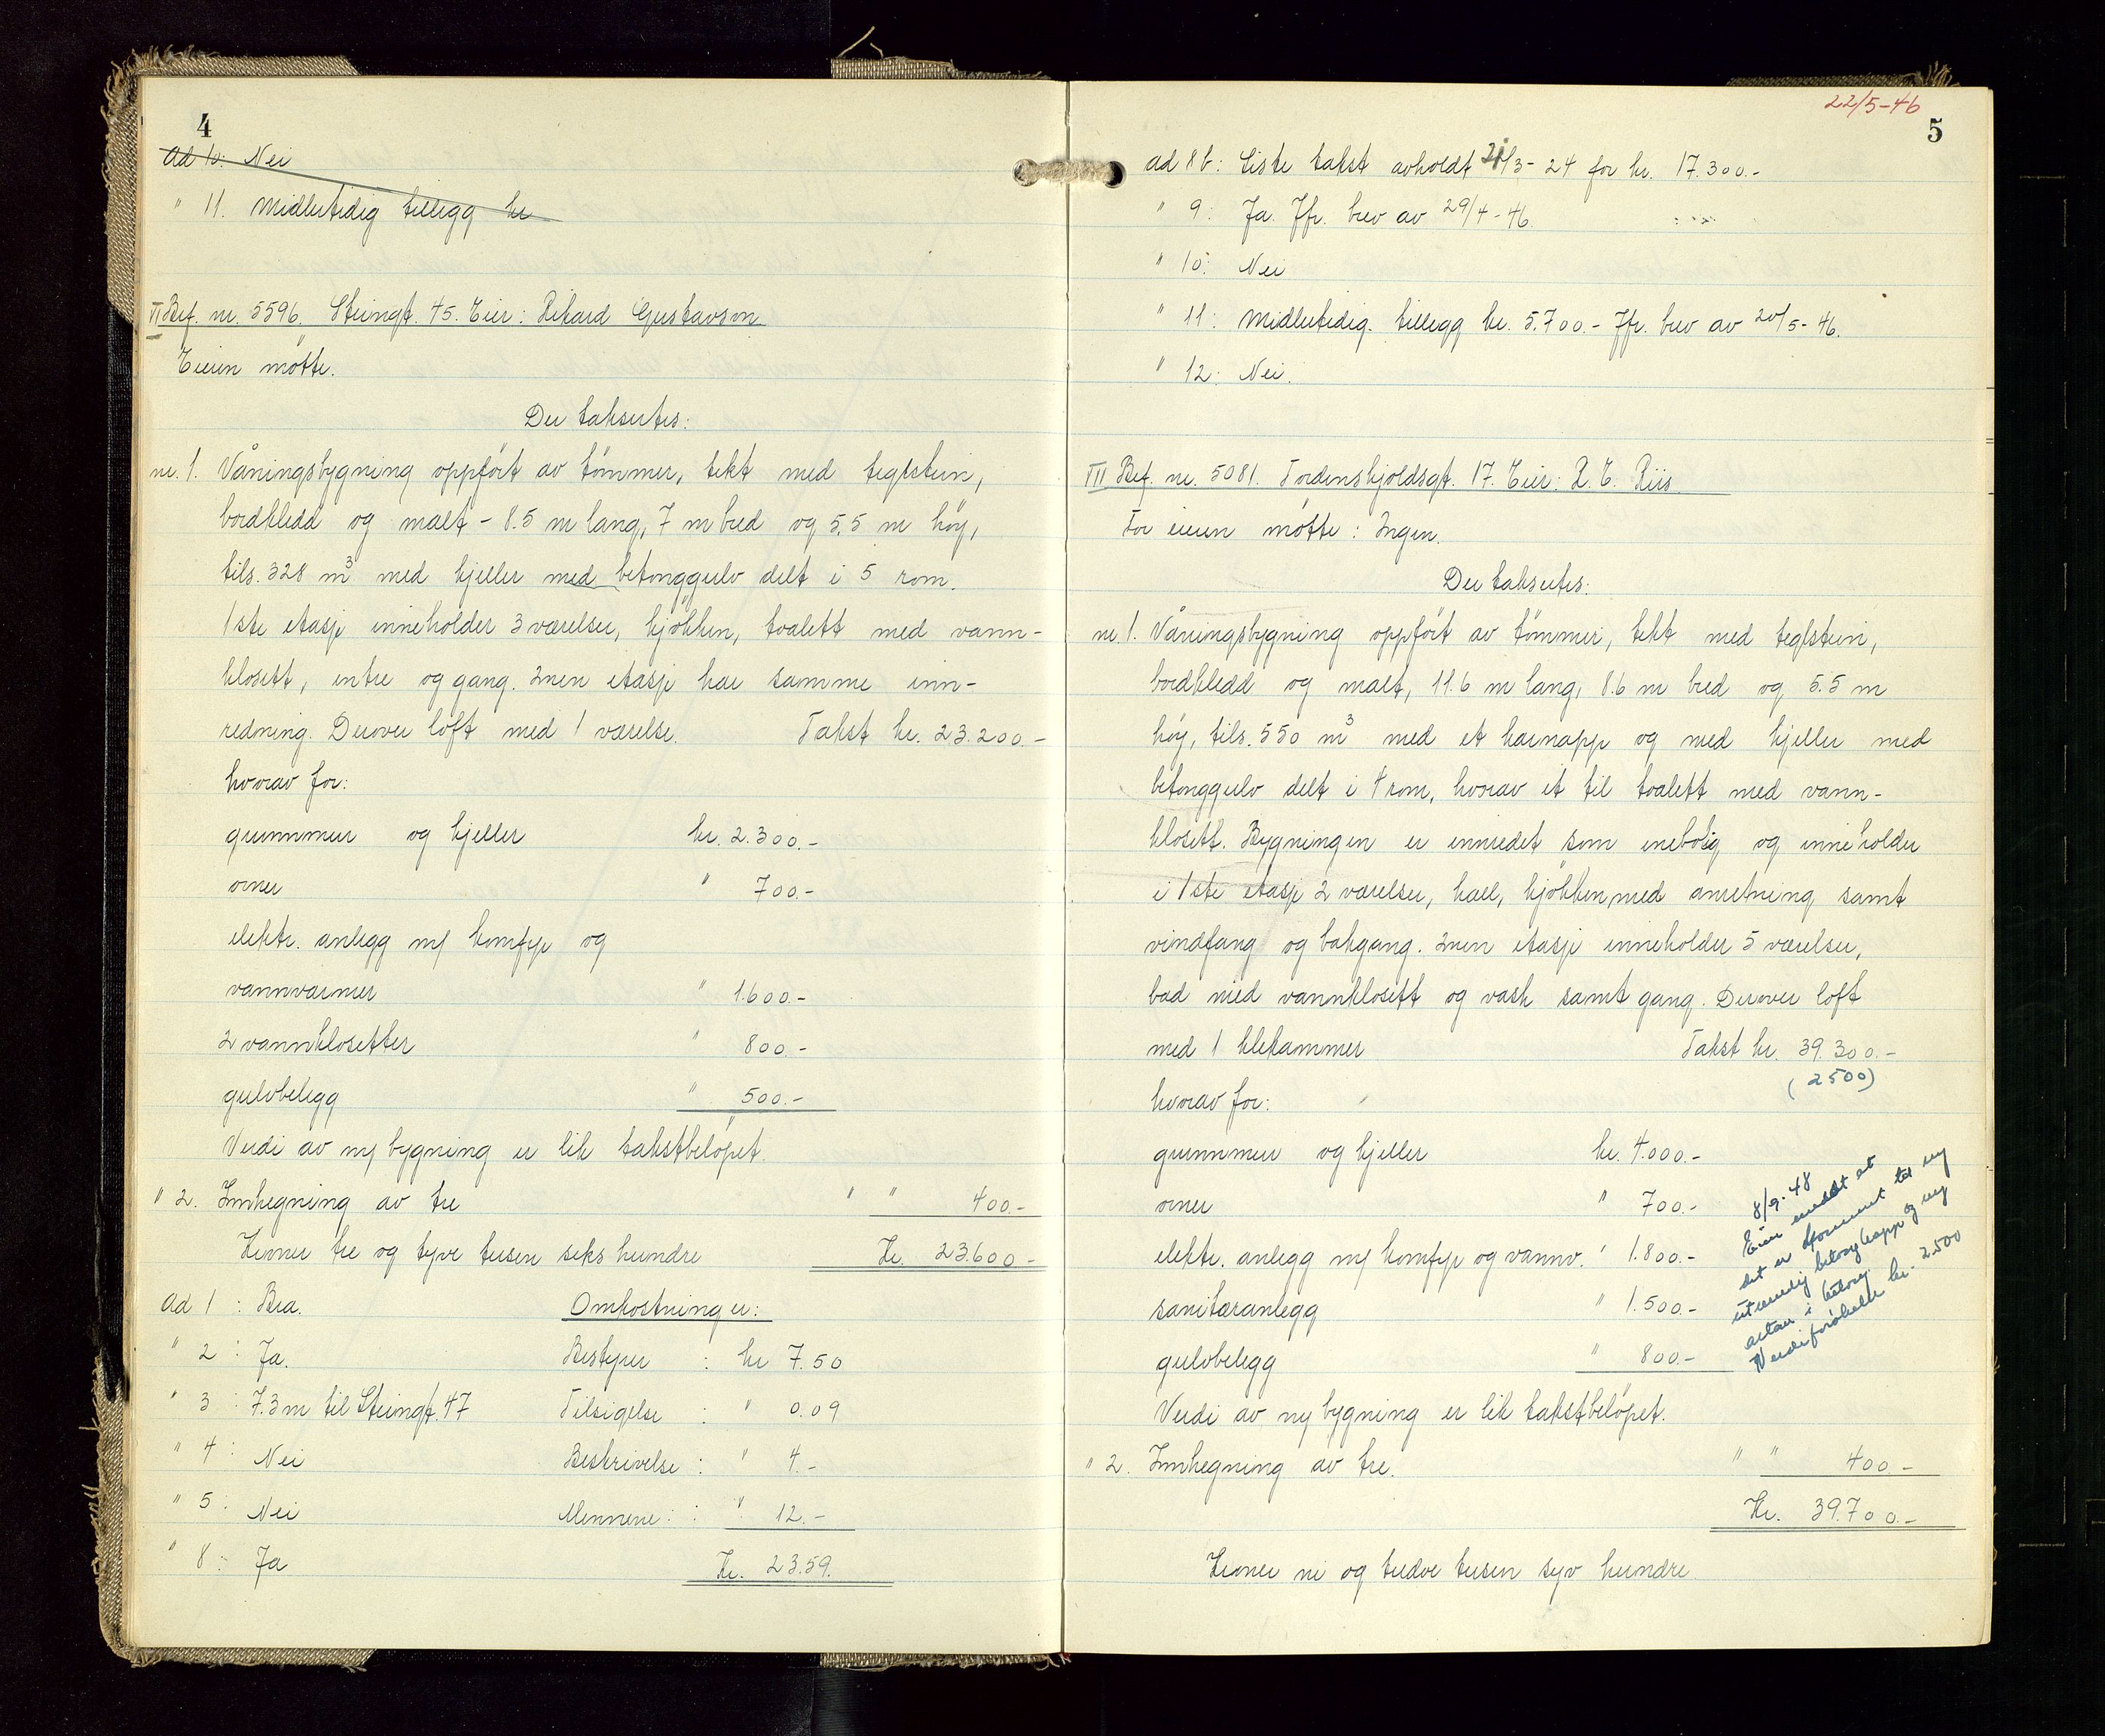 4
Ad 10: Nei
" 11. Midlertidig tillegg kr
II Bef. nr. 5596. Steingt. 45. Eier: Rikard Gustavson
Eieren møtte.
Der taksertes:
nr. 1. Våningsbygning oppført av tømmer, tekt med teglstein,
bordkledd og malt - 8.5 m lang, 7 m bred og 5.5 m høy,
tils. 328 m³ med kjeller med betonggulv delt i 5 rom.
1ste etasje inneholder 3 værelser, kjøkken, toalett med vann-
klosett, entre og gang. 2nen etasje har samme inn-
redning. Derover loft med 1 værelse. Takst kr. 23.200.-
hvorav for:
grunnmur og kjeller kr. 2.300.-
ovner " 700.-
elektr. anlegg m/ komfyr og
vannvarmer " 1.600.-
2 vannklosetter " 800.-
gulvbelegg " 500.-
Verdi av ny bygning er lik takstbeløpet.
" 2. Innhegning av tre " " 400.-
Kroner tre og tyve tusen seks hundre Kr. 23.600-
Ad 1 : Bra. Omkostninger:
" 2 : Ja. Bestyrer : kr 7.50
" 3 : 7.3 m til Steingt. 47 Tilsigelse : " 0.09
" 4 : Nei Beskrivelse : " 4.-
" 5 : Nei Mennene : " 12.-
" 8 : Ja Kr. 23.59.
22/5-46
5
ad 8b: Siste takst avholdt 21/3-24 for kr. 17.300.-
" 9: Ja. Jfr. brev av 29/4-46.
" 10: Nei
" 11: Midlertidig tillegg kr. 5.700.- Jfr. brev av 20/5-46.
" 12: Nei.
III Bef. nr. 5081. Tordenskjoldsgt. 17. Eier: R. E. Riis
For eieren møtte: Ingen.
Der taksertes:
nr. 1. Våningsbygning oppført av tømmer, tekt med teglstein,
bordkledd og malt, 11.6 m lang, 8.6 m bred og 5.5 m
høy, tils. 550 m³ med et karnapp og med kjeller med
betonggulv delt i 4 rom, hvorav et til toalett med vann-
klosett. Bygningen er innredet som enebolig og inneholder
i 1ste etasje 2 værelser, hall, kjøkken med anretning samt
vindfang og bakgang. 2nen etasje inneholder 5 værelser,
bad med vannklosett og vask samt gang. Derover loft
med 1 klekammer Takst kr. 39.300.-
(2500)
hvorav for:
grunnmur og kjeller kr. 4.000.-
ovner " 700.-
elektr. anlegg m/ komfyr og vannv. " 1.800.-
sanitæranlegg " 1.500.-
gulvbelegg " 800.-
8/9-48
Eier meddelt at
det er kommet til ny
utvendig betong trapp og ny
altan i betong.
Verdiforøkelse kr. 2500
Verdi av ny bygning er lik takstbeløpet.
" 2. Innhegning av tre. " " 400-
Kr. 39.700.-
Kroner ni og tredve tusen syv hundre